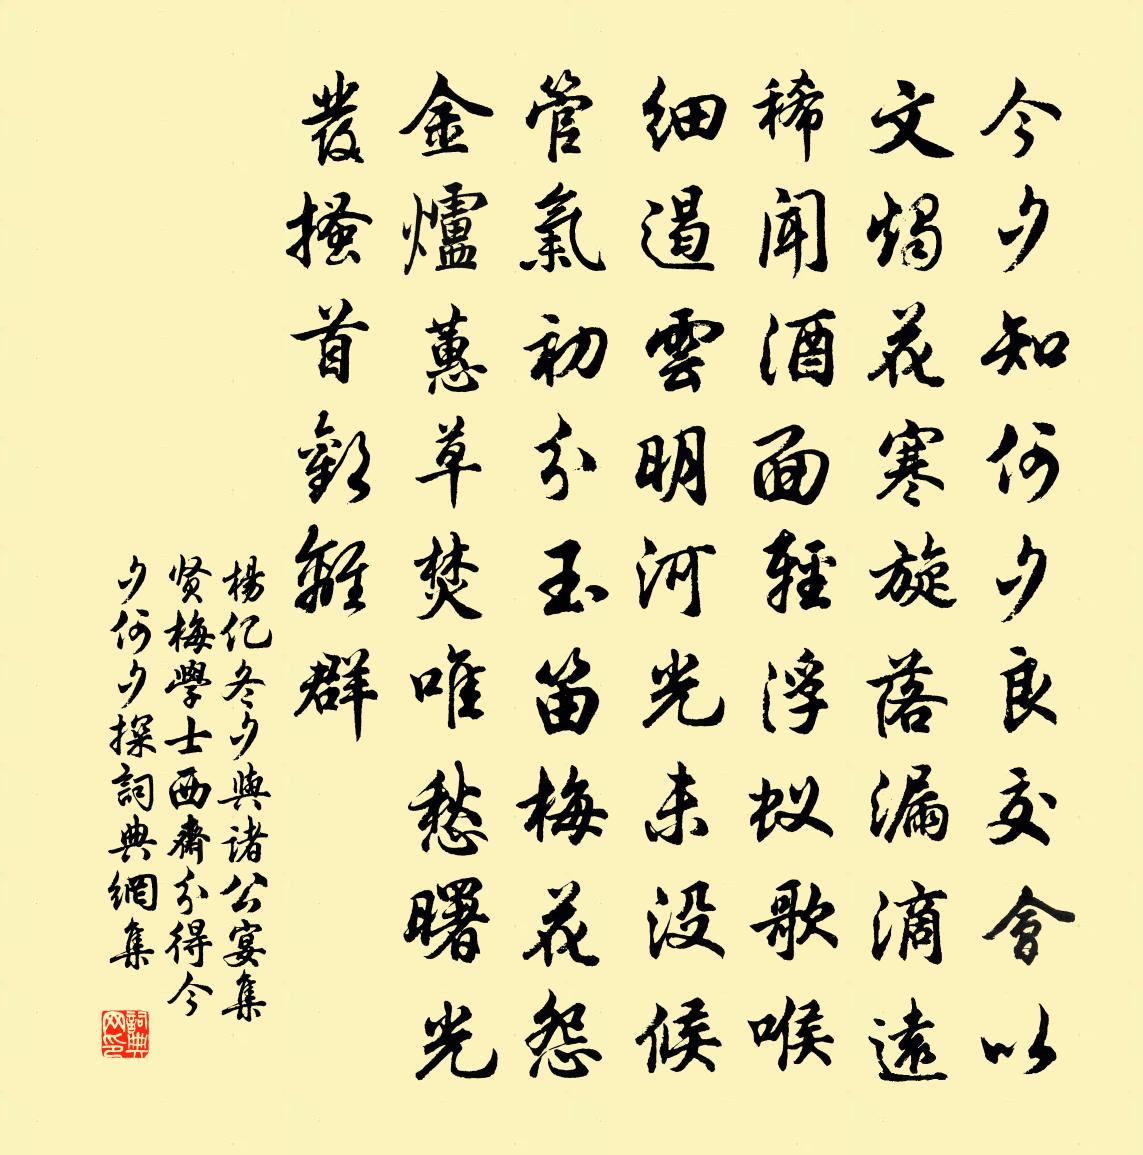 今夕知何夕良交會以
文燭花寒旋落漏滴遠
稀聞酒面輕浮蚁歌喉
細遏雲明河光未没候
管氣初分玉笛梅花怨
金爐蕙草焚唯愁曙光
發搔首歎離群
楊亿冬夕與诸公宴集
贤梅學士西齋分得今
夕何夕探詞典網集
詞典網印